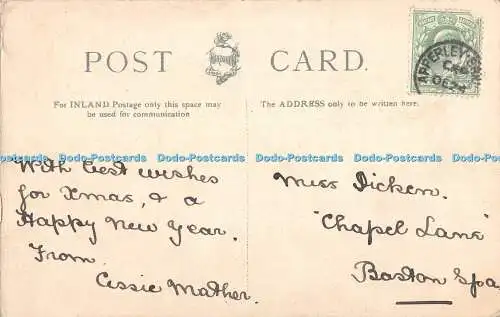 POST CARD.
For INLAND Postage only this space may
be used for communication
The ADDRESS only to be written here.
With best wishes
for Xmas, & a
Happy New Year.
From
Cissie Mather.
Miss Dicken.
"Chapel Lane"
Baston Spa
APPERLEY
DE 24
Dodo-Postcards Dodo-Postcards Dodo-Postcards Dodo-Postcards